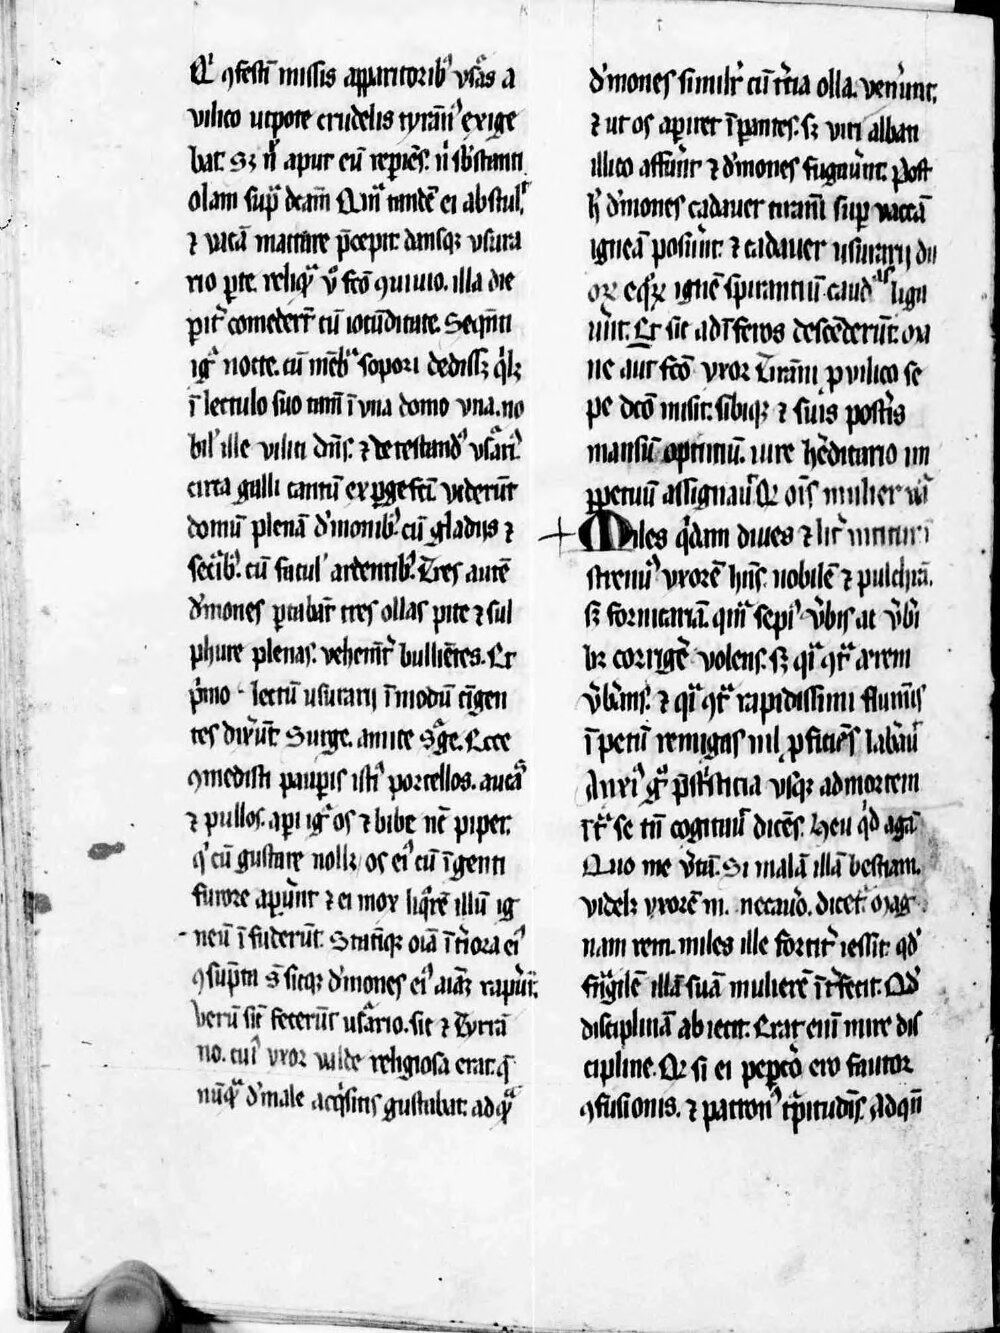 Qi ꝯfestĩ missis apparitoribꝰ vsꝰas a
vilico utpote crudelis tyrãnꝰ exige
bat. Sꝫ nͥ aput eũ repiẽs. nͥ sb̾stanti
olam sup̾ dcam̃ ei abstul̾
⁊ vacã mactare p̃cepit. dansqꝫ vsura
rio ꝑte. reliqͣ v̾o scõ illa die
ꝑit̾ comeder̃t cũ iocũditate. Seqẽti
igͥ nocte. cũ mẽbͣ sopori dedissꝫ qͥlꝫ
ĩ lectulo suo tam̃ ĩ vna domo vna. no
bil̾ ille vilici dñs. ⁊ detestandꝰ vsꝰariꝰ
circa galli cantũ exꝑgefcĩ viderũt
domũ plenã d̾monibꝰ. cũ gladiis ⁊
secͥbꝰ. cũ facul̾ ardentibꝰ. Tres autẽ
d̾mones ꝑtabãt tres ollas pice ⁊ sul
phure plenas. vehemẽt̾ bulliẽtes. Et
pͥmo lectũ usurarij ĩ modũ cĩgen
tes dix̾ũt Surge. amice sꝰge. Ecce
ꝯmedisti pauꝑis istiꝰ porcellos. aucã
⁊ pullos. aꝑi igͥ os ⁊ bibe nẽ piper.
qͥ cũ gustare nollꝫ os eiꝰ cũ ĩgenti
furore aꝑu̾nt ⁊ ei mox liqͥrẽ illũ ig
neũ ĩfuderũt. Statĩqꝫ oĩa ĩt̾iora eiꝰ
ꝯsũpta st̃ sicqꝫ d̾mones eiꝰ aĩaꝫ rapu̾ũt.
Verũ sic̃ fecerũt usꝰario. sic ⁊ Tyrã
no. cuiꝰ vxor valde religiosa erat. qͥ
nũqͣ d̾ male acqͥsitis gustabat. ad qͣ
d̾mones simil̾r cũ t̾cia olla. venu̾nt.
⁊ ut os aꝑiret ĩpantes. sꝫ viri albati
illico affu̾nt ⁊ d̾mones fugau̾nt. post
h̾ d̾mones cadauer tirãni suꝑ vaccã
igneã posu̾nt. ⁊ cadauer usurarij du
oꝝ eqͦꝝ ignẽ spirantiũ caudas liga
u̾nt. Et sic ad ĩferos descẽderũt. oĩa
ne aut̾ scõ vxor Tirãni ꝓ vilico se
pe dcõ misit. sibiqꝫ ⁊ suis post̾is
mansũ optimũ. iure h̾editario im
ꝑpetuũ assignauͥ Qꝛ oĩs mulier
Miles qͥdam diues ⁊
strenuꝰ vxorẽ hñs. nobilẽ ⁊ pulchrã.
sꝫ fornicariã. quã sepiꝰ v̾bis ac v̾bi
bꝫ corrig̾e volens. sꝫ qͣi ꝯt̾ aerem
v̾bãs. ⁊ qͣi ꝯt̾ rapidissimi flumĩs
ĩpetũ remigãs nil ꝓficiẽs labãuͥ
Anxiꝰ gͦ p̃ t̾sticia vsqꝫ ad mortem
ĩt̾ se tñ cogitauͥ dicẽs. Heu qͥd agã
Quo me v̾tã. Si malã illã bestiam.
videlꝫ vxorẽ m. necau̾o. dicet̾ Mag
nam rem. miles ille fortit̾ iessit. qd̾
frͣgilẽ illã suã mulierẽ ĩt̾fecit. Qd̾
disciplinã abiecit. Erat enĩ mire dis
cipline. Qꝛ si ei peꝑco̾ ero fautor
ꝯfusionis. ⁊ patronꝰ t̾pitudĩs. Ad qñ